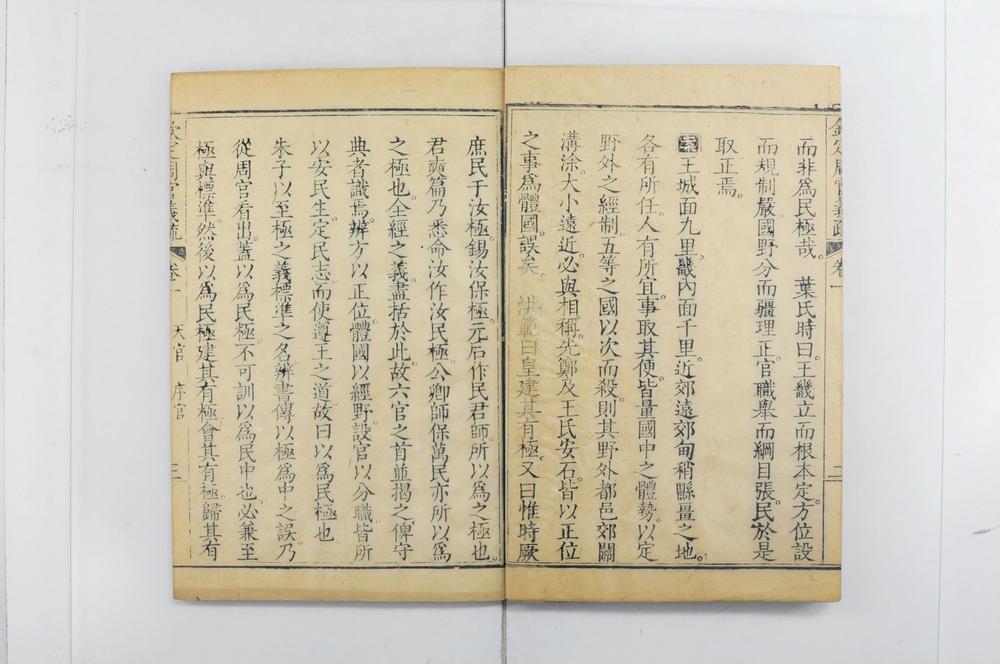 而非爲民極哉。 葉氏時曰。王畿立而根本定。方位設
而規制嚴。國野分而疆理正。官職舉而綱目張。民於是
取正焉。
案王城面九里。畿內面千里。近郊遠郊甸稍縣畺之地。
各有所任。人有所宜。事取其便。皆量國中之體勢。以定
野外之經制。五等之國以次而殺。則其野外都邑郊關
溝涂。大小遠近。必與相稱。先鄭及王氏安石。皆以正位
之事爲體國。誤矣。 洪範曰皇建其有極。又曰惟時厥
庶民于汝極。錫汝保極。元后作民君師。所以爲之極也。
君奭篇乃悉命汝作汝民極。公卿師保萬民。亦所以爲
之極也。全經之義。盡括於此。故六官之首並揭之。俾守
典者識焉。辨方以正位。體國以經野。設官以分職。皆所
以安民生定民志而使遵王之道。故曰以爲民極也
朱子以至極之義標準之名。辨書傳以極爲中之誤。乃
從周官看出。蓋以爲民極。不可訓以爲民中也。必兼至
極與標準。然後以爲民極建其有極會其有極歸其有
欽定周官義疏 卷一 二
欽定周官義疏 卷一 天官 序官 三